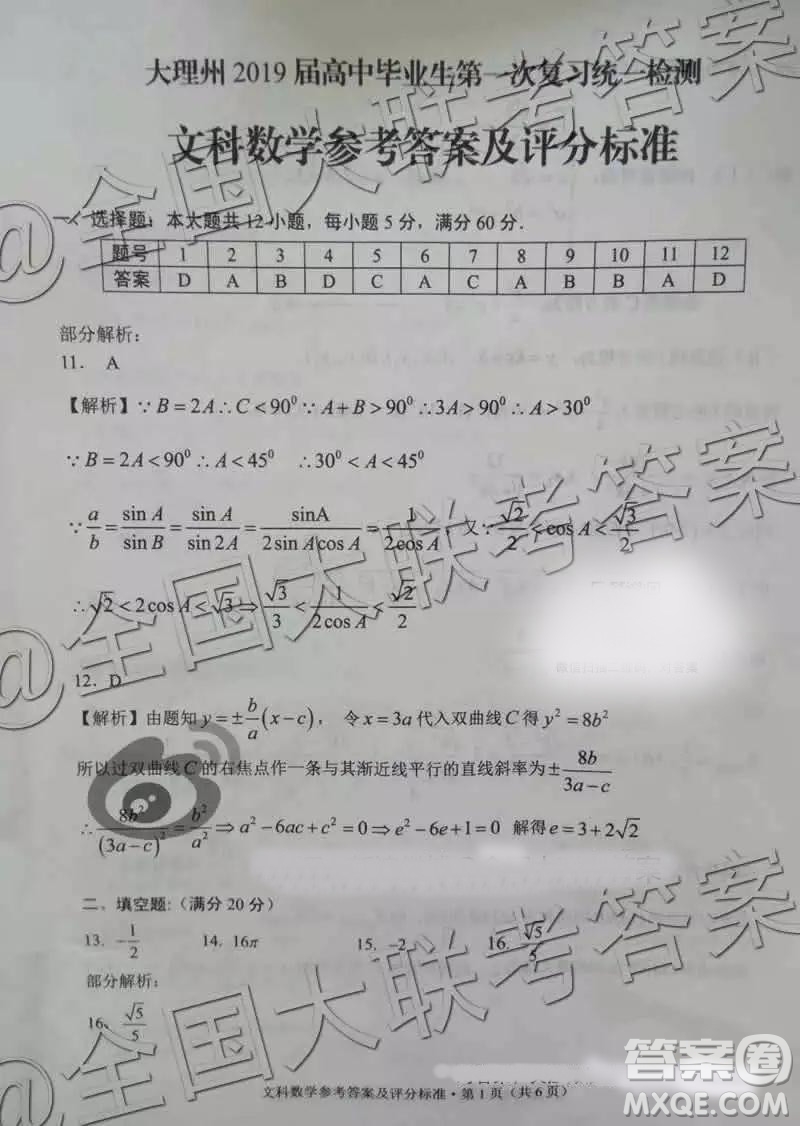 大理州2019届高中毕业生第一次复习统一检测
文科数学参考答案及评分标准
一、选择题：本大题共12小题，每小题5分，满分60分．
题号 1 2 3 4 5 6 7 8 9 10 11 12
答案 D A B D C A C A B B A D
部分解析：
11． A
【解析】∵B=2A∴C<90⁰ ∵A+B>90⁰∴3A>90⁰∴A>30⁰
∵B=2A<90⁰∴A<45⁰ ∴30⁰<A<45⁰
∵a/b=sin A/sin B=sin A/sin 2A=sinA/(2sin A cos A)=1/(2cos A)，又∵√2/2<cos A<√3/2
∴√2<2cos A<√3⇒√3/3<1/(2cos A)<√2/2
12．D
【解析】由题知y=±b/a(x−c)， 令x=3a代入双曲线C得y²=8b²
所以过双曲线C的右焦点作一条与其渐近线平行的直线斜率为±8b/(3a−c)
∴8b²/(3a−c)²=b²/a²⇒a²−6ac+c²=0⇒e²−6e+1=0 解得e=3+2√2
二、填空题:（满分20分）
13. −1/2 14. 16π 15. -2 16. √5/5
部分解析：
16、√5/5
文科数学参考答案及评分标准·第1页（共6页）
@全国大联考答案
@全国大联考答案
全国大联考答案
答案圈
MXQE.COM